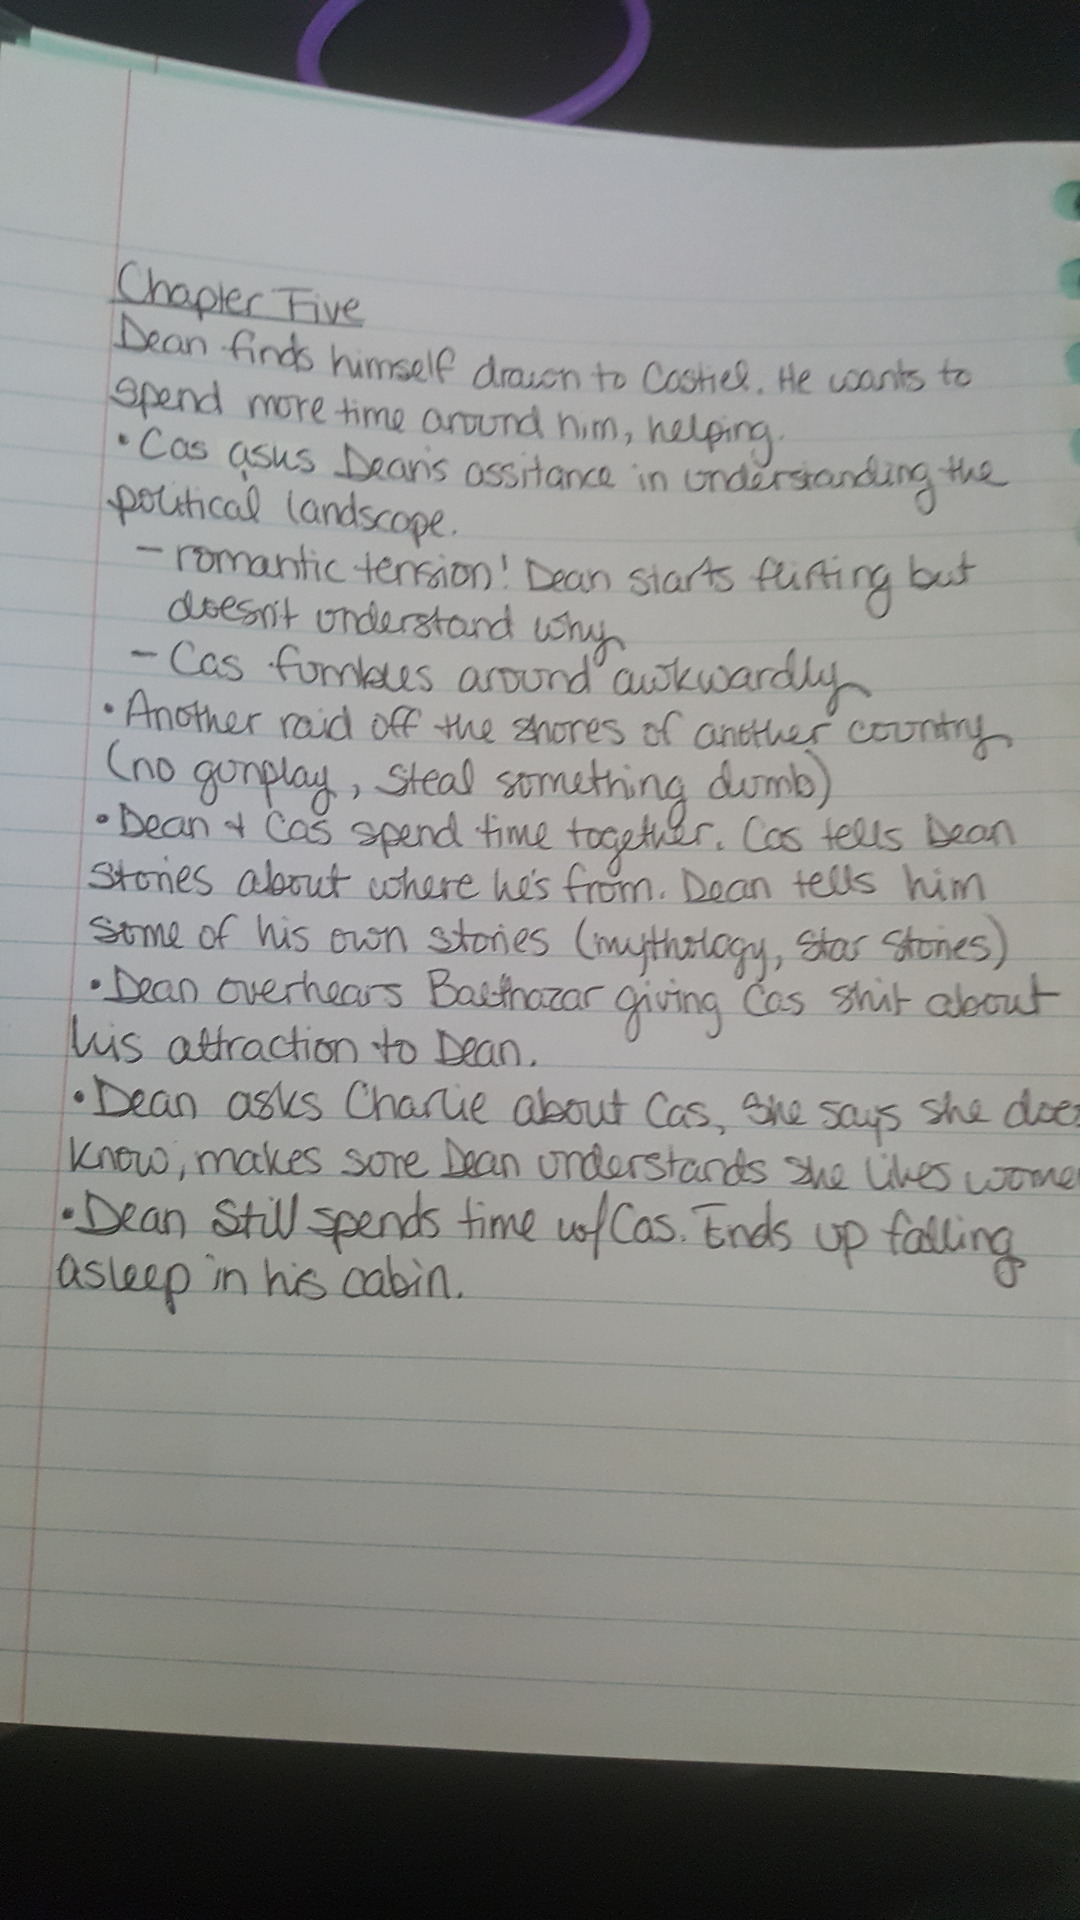 Chapter Five
Dean finds himself drawn to Castiel. He wants to
spend more time around him, helping.
• Cas asks Dean's assitance in understanding the
political landscape.
- romantic tension! Dean starts flirting but
doesn't understand why
- Cas fumbles around awkwardly
• Another raid off the shores of another country
(no gunplay, steal something dumb)
• Dean + Cas spend time together. Cas tells Dean
stories about where he's from. Dean tells him
some of his own stories (mythology, star stories)
• Dean overhears Balthazar giving Cas shit about
his attraction to Dean.
• Dean asks Charlie about Cas, she says she does
know, makes sure Dean understands she likes wome
• Dean still spends time w/ Cas. Ends up falling
asleep in his cabin.